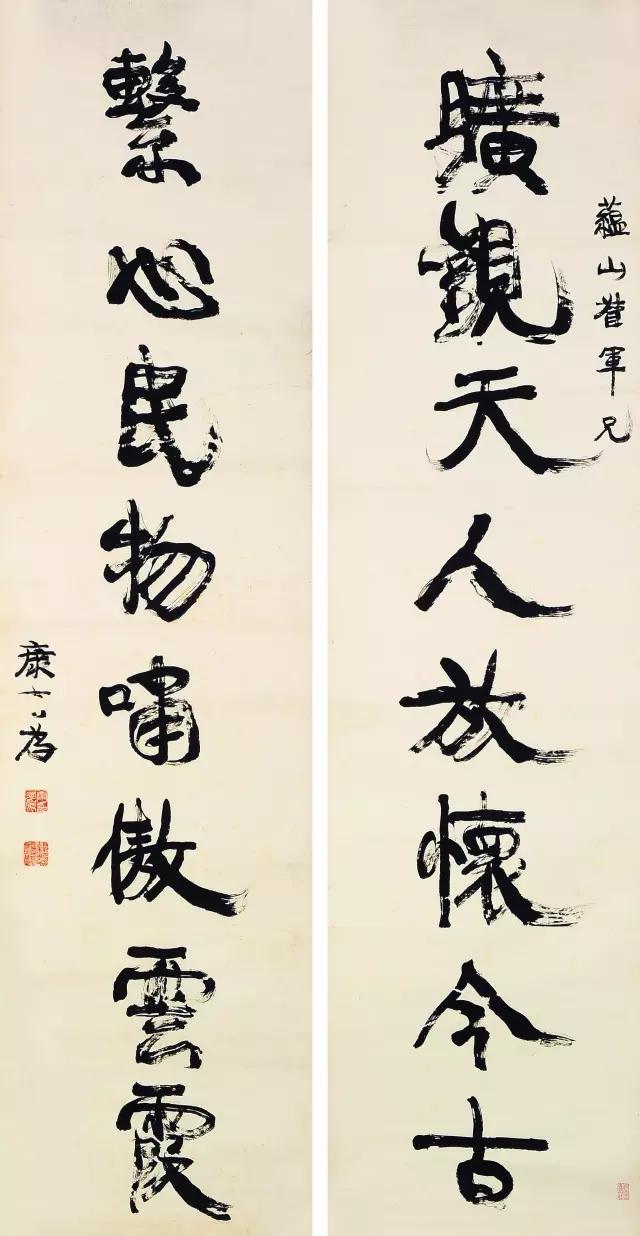 蘊山督軍兄
曠觀天人放懷今古
繫心民物嘯傲雲霞
康有為